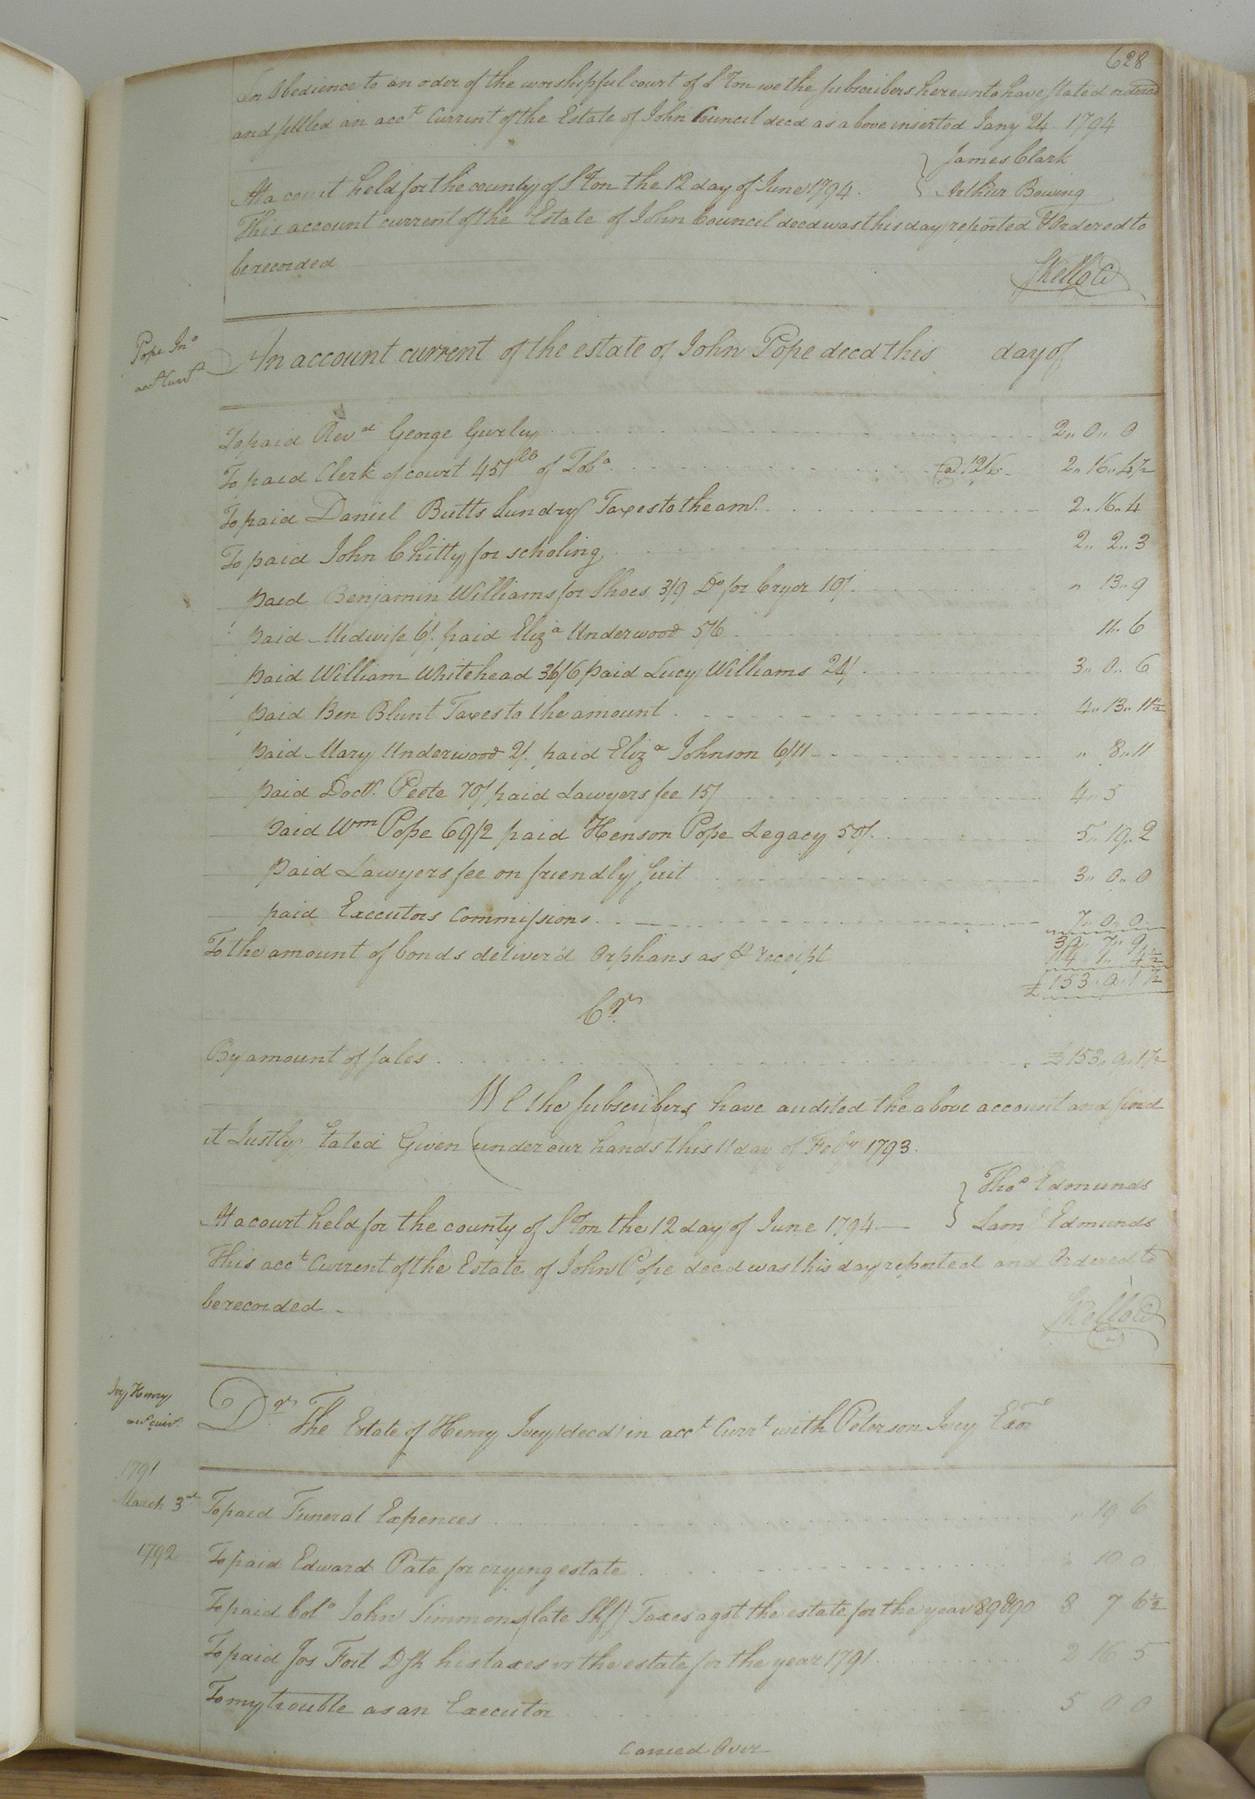 628
In Obedience to an oder of the worshipful court of S Ton we the subscribers hereunto have stated
and settled an acct Current of the Estate of John Council decd as above inserted Jany 24 1794
James Clark
At a court held for the county of S Ton the 12 day of June 1794.
Arthur Bowing
This account current of the Estate of John Council decd was this day reported & Ordered to
be recorded
Pope Jno
acct Currt
An account current of the estate of John Pope decd this day of
To paid Revd George Gurley 2,, 0,, 0
To paid Clerk of court 451 lb of Toba @ 12/6 2,, 16,, 4½
To paid Daniel Butts Sundry Taxes to the amt 2,, 16,, 4
To paid John Chitty for scholing 2,, 2,, 3
paid Benjamin Williams for Shoes 3/9 Do for Cryer 10/ ,, 13,, 9
paid Midwife 6/ paid Eliza Underwood 5/6 11,, 6
paid William Whitehead 36/6 paid Lucy Williams 24/ 3,, 0,, 6
paid Ben Blunt Taxes to the amount 4,, 13,, 11½
paid Mary Underwood 2/ paid Eliza Johnson 6/11 ,, 8,, 11
paid Doctr Peete 70/ paid Lawyers fee 15/ 4,, 5
paid Wm Pope 69/2 paid Henson Pope Legacy 50/ 5,, 19,, 2
paid Lawyers fee on friendly suit 3,, 0,, 0
paid Executors Commissions 7,, 0,, 0
39,, 7,, 9
To the amount of bonds deliver'd Orphans as pr receipt
£ 153,, 9,, 1½
Cr
By amount of sales £ 153,, 9,, 1½
We the subscribers have audited the above account and find
it Justly stated Given under our hands this 11 day of Feby 1793.
Thos Edmunds
At a court held for the county of S Ton the 12 day of June 1794
Saml Edmunds
This acct Current of the Estate of John Pope decd was this day reported and Ordered to
be recorded
Ivy Henry
acct curr
Dr The Estate of Henry Ivey (decd) in acct Currt with Peterson Ivey Exor
1791
March 3rd To paid Funeral Expences ,, 19 6
1792 To paid Edward Pate for crying estate ,, 10 0
To paid Colo John Simmons (late Shf) Taxes agst the estate for the year 89 & 90 8 7 6½
To paid Jos Fort D Sh his taxes vs the estate for the year 1791 2 16 5
To my trouble as an Executor 5 0 0
Carried Over